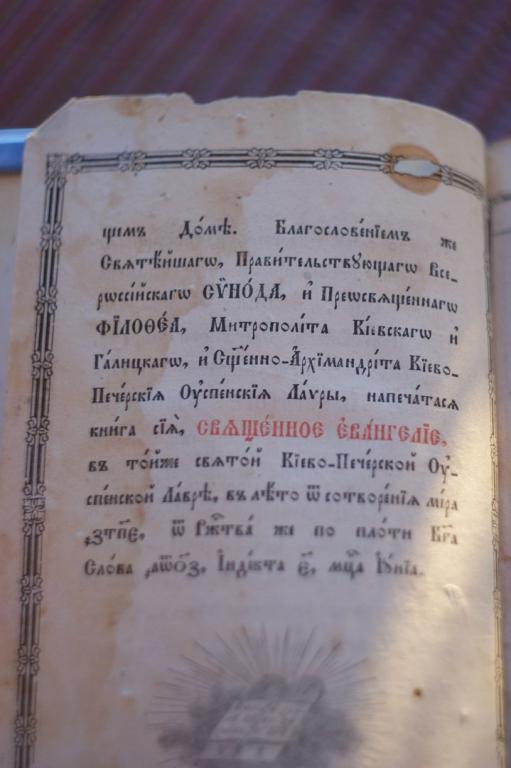 щемъ До́мѣ. Благослове́нїемъ же
Свѧтѣ́йшагѡ, Прави́тельствꙋющагѡ Все-
рѡссі́йскагѡ СѴНО́ДА, и҆ Преѡсвѧще́ннагѡ
ФІЛОѲЕ́А, Митрополі́та Кі́евскагѡ и҆
Га́лицкагѡ, и҆ Сщ҃е́нно-А҆рхїмандрі́та Кїево-
Пече́рскїѧ Оу҆спе́нскїѧ Ла́ѵры, напеча́тасѧ
кни́га сїѧ̀, СВѦЩЕ́ННОЕ Е҆ВА́НГЕЛІЕ,
въ то́йже свѧто́й Кїево-Пече́рской Оу҆-
спе́нской Ла́ѵрѣ, въ лѣ́то ѿ сотворе́нїѧ мі́ра
҂зтп҃е, ѿ Рж҃тва̀ же по пло́ти Бг҃а
Сло́ва ҂аѿо҃з, І҆ндї́кта є҃, мц҃а І҆ꙋ́нїа.